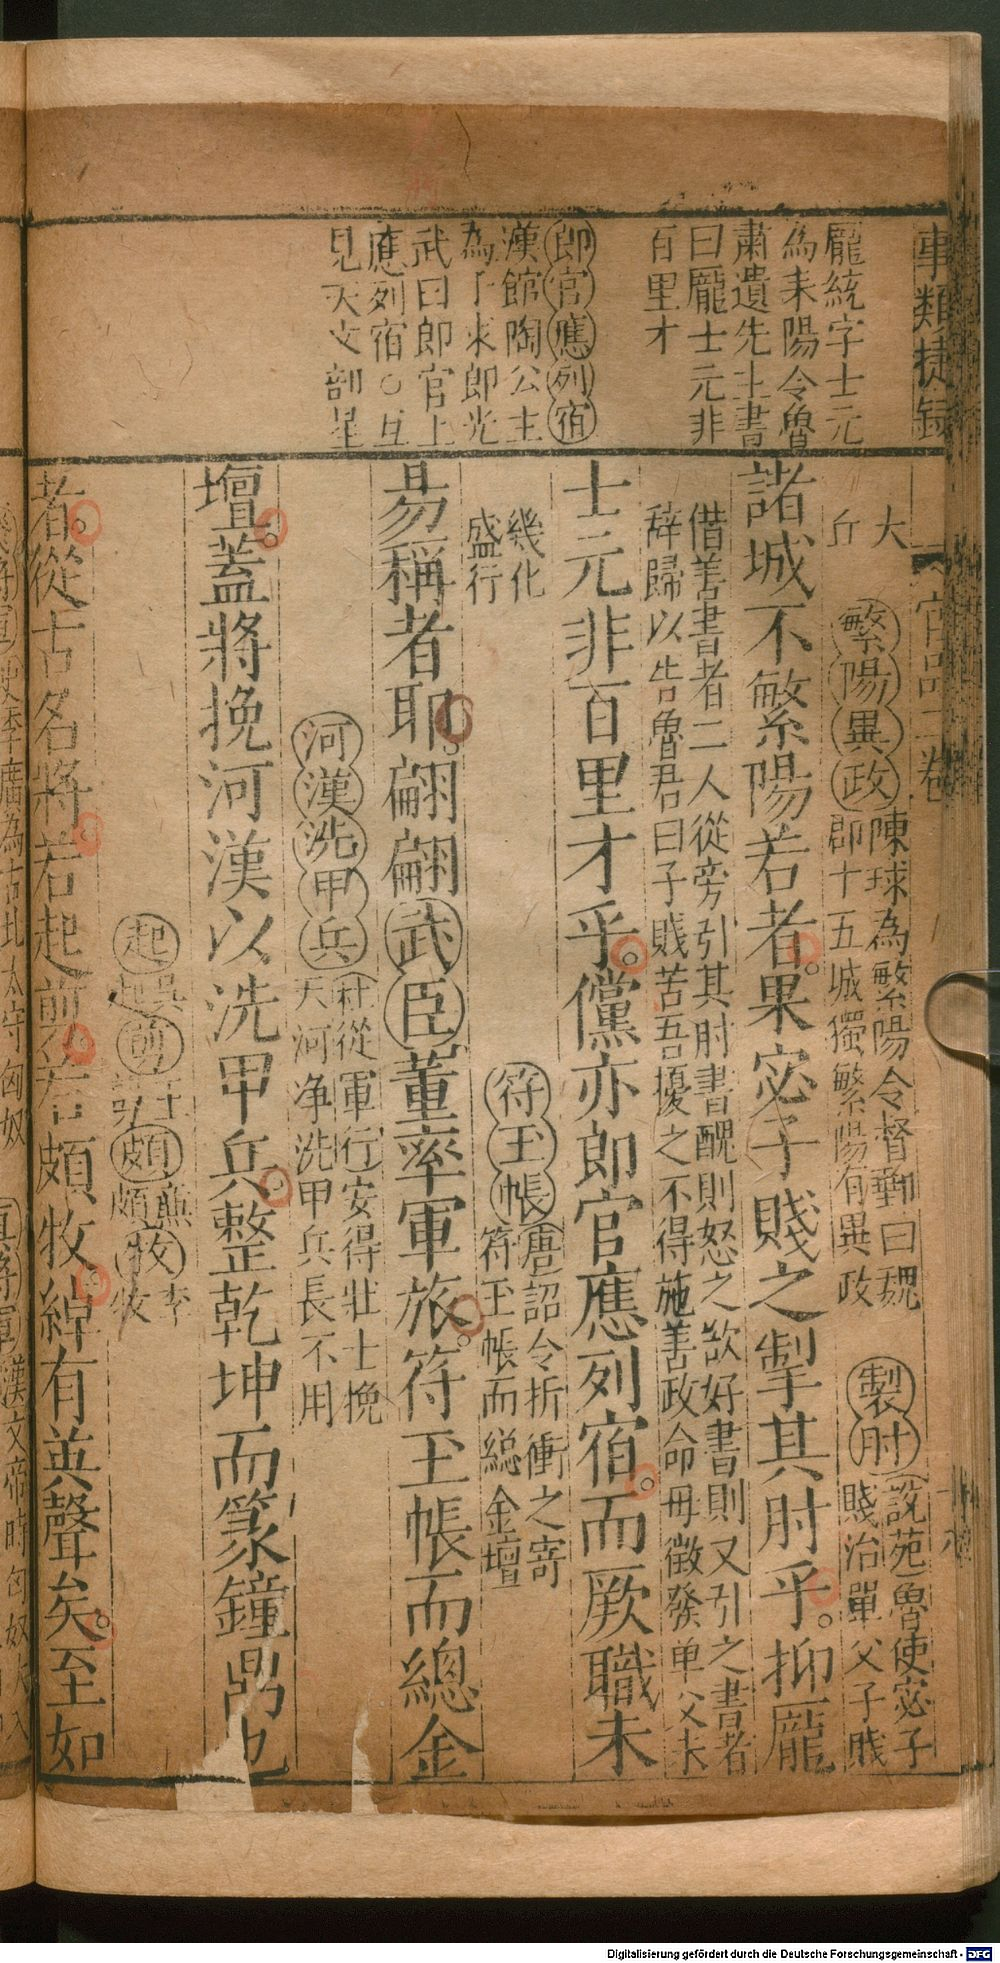 事類捷錄
官品二卷
龐統字士元
為耒陽令魯
肅遺先主書
曰龐士元非
百里才
郎官應列宿
漢館陶公主
為子求郎光
武曰郎官上
應列宿○互
見天文部星
大
丘
繁陽異政
陳球為繁陽令督郵曰魏
郡十五城獨繁陽有異政
掣肘
說苑魯使宓子
賤治單父子賤
諸城不繁陽若者。果宓子賤之掣其肘乎。抑龐
借善書者二人從旁引其肘書醜則怒之欲好書則又引之書者
辭歸以告魯君曰子賤苦吾擾之不得施善政命毋徵發单父未
士元非百里才乎。儻亦郎官應列宿。而厥職未
幾化
盛行
符玉帳
唐詔令折衝之寄
符玉帳而総金壇
昜稱者耶。翩翩武臣董率軍旅。符玉帳而總金
河漢洗甲兵
杜從軍行安得壯士挽
天河净洗甲兵長不用
壇蓋將挽河漢以洗甲兵。整乾坤而篆鐘鼎也
起
吳起
剪
王
頗
頗
牧
李牧
者。從古名將。若起剪。若頗牧。綽有英聲矣。至如
史李廣為右北太守匈奴
漢文帝時匈奴
Digitalisierung gefördert durch die Deutsche Forschungsgemeinschaft - DFG